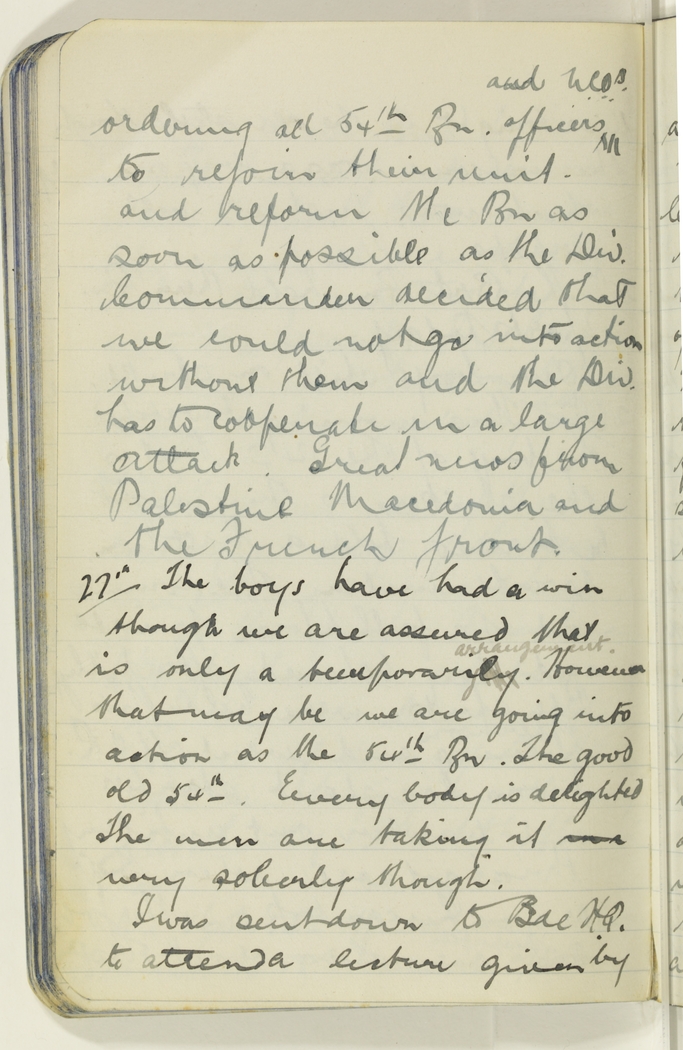 and NCOs.
ordering all 54th Bn. officers
to rejoin their unit.
and reform the Bn as
soon as possible as the Div.
Commander decided that
we could not go into action
without them and the Div.
has to cooperate in a large
attack. Great news from
Palestine Macedonia and
the French front.
27th The boys have had a win
though we are assured that
arrangement.
is only a temporarily. However
that may be we are going into
action as the 54th Bn. The good
old 54th. Every body is delighted
The men are taking it
very soberly though.
I was sent down to Bde H.Q.
to attend a lecture given by